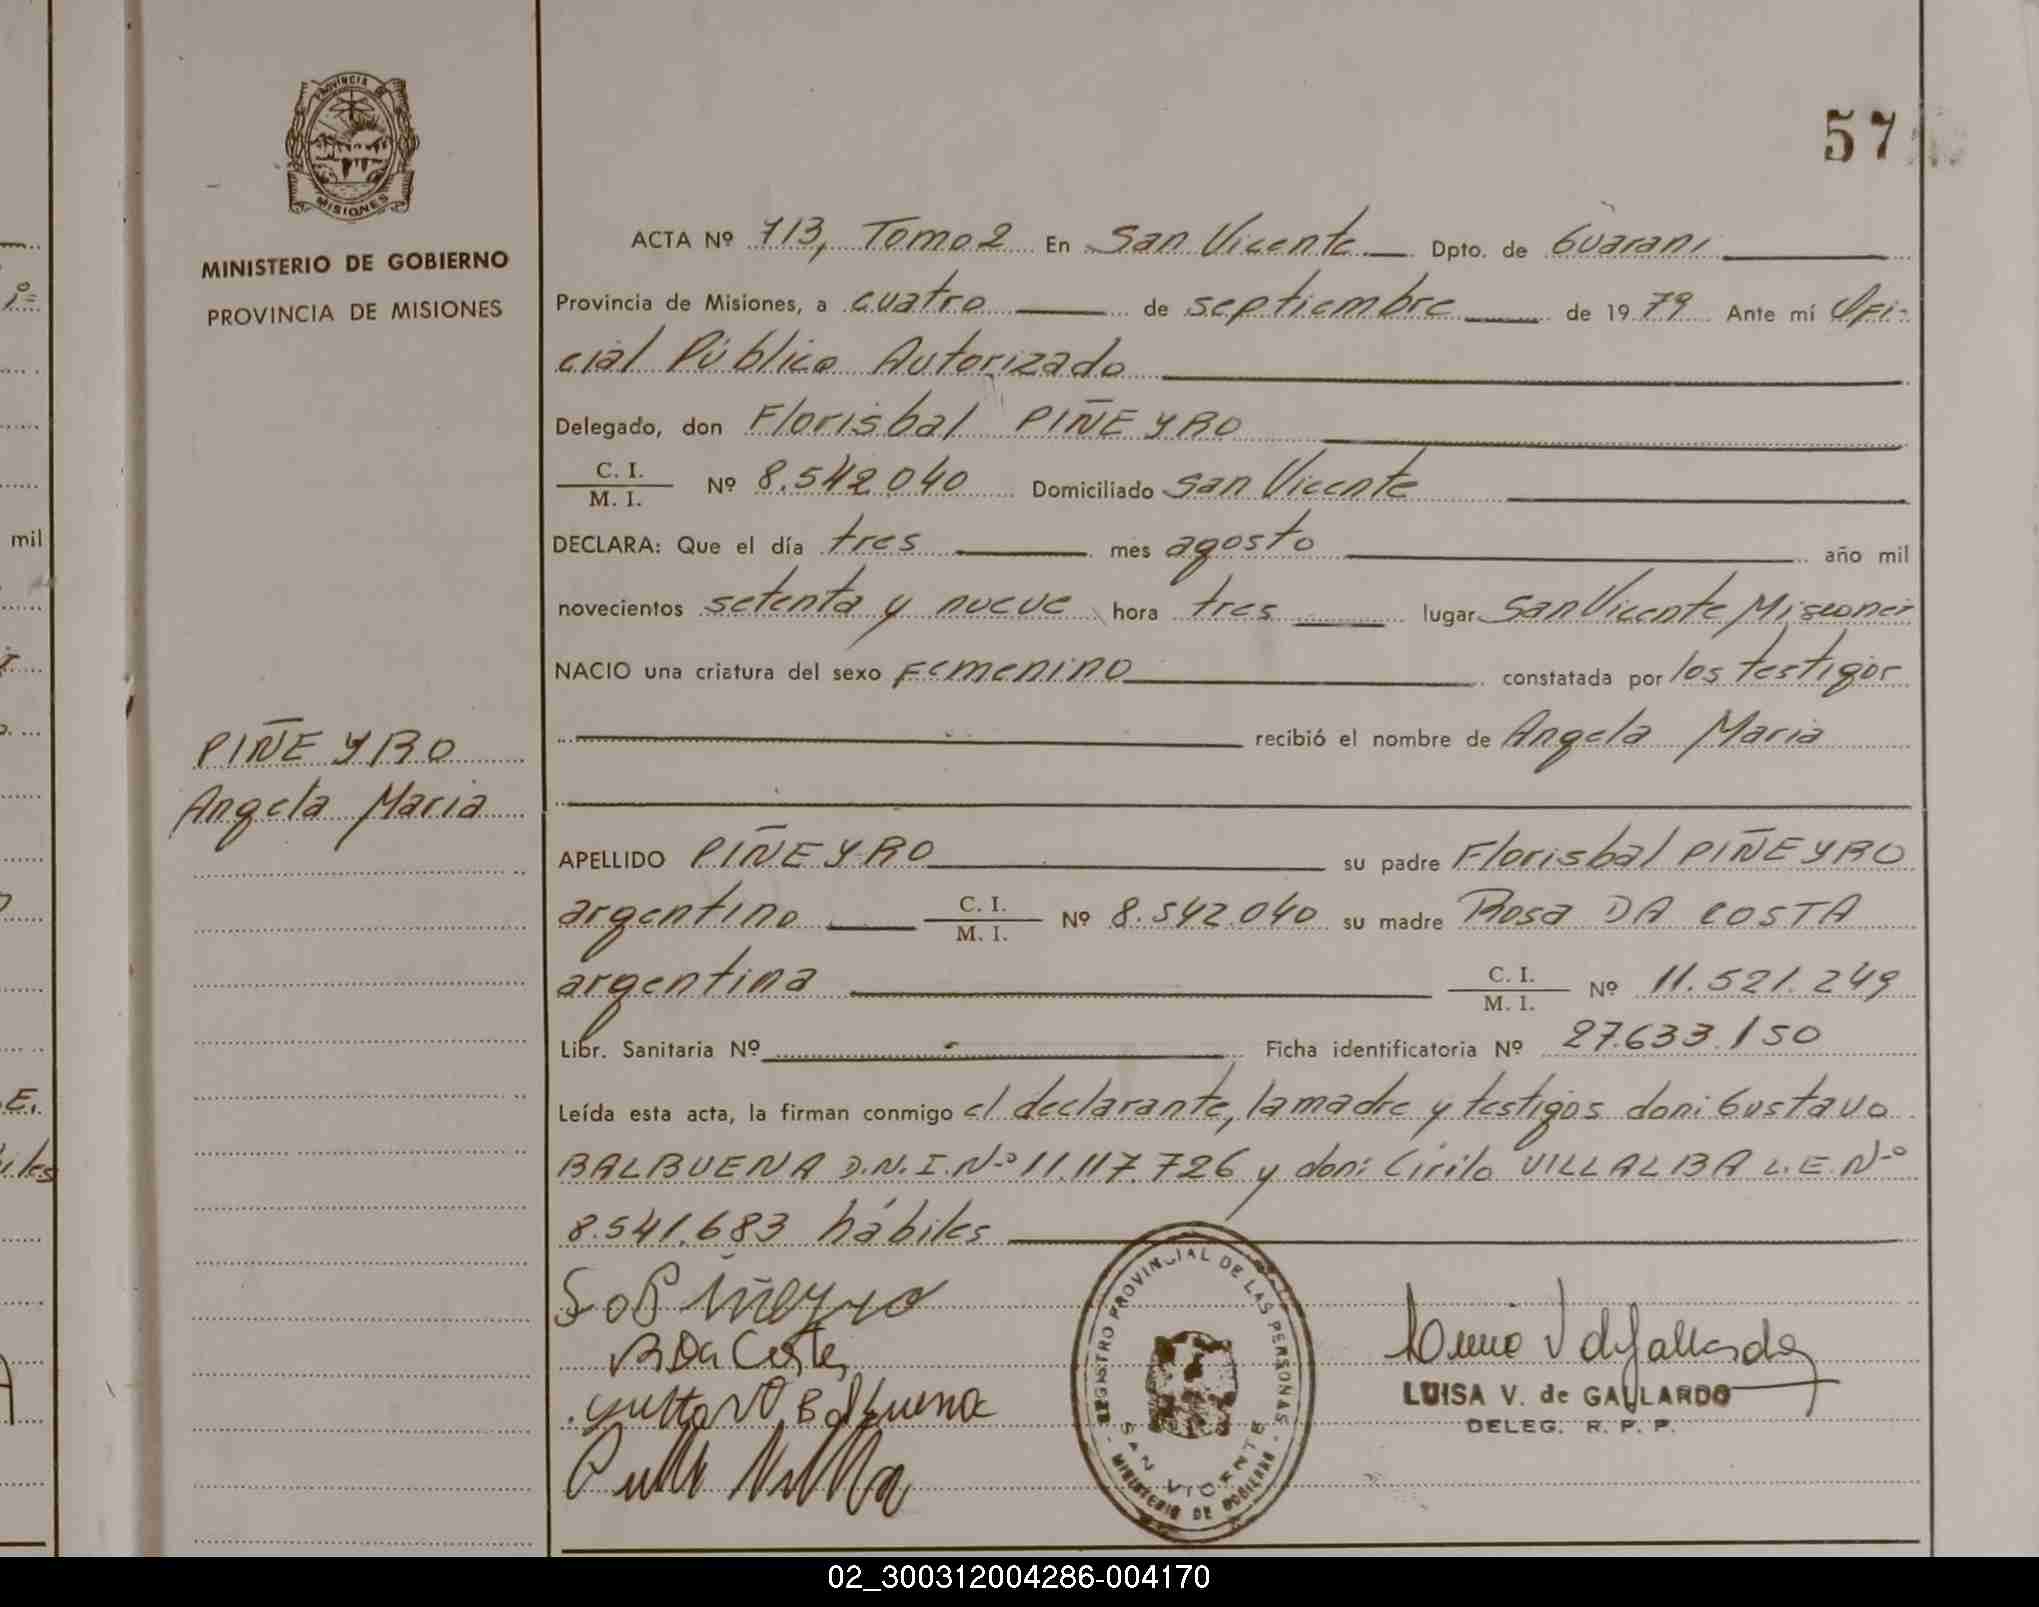 57
PROVINCIA DE
MISIONES
MINISTERIO DE GOBIERNO
PROVINCIA DE MISIONES
ACTA Nº 713, Tomo 2 En San Vicente Dpto. de Guarani
Provincia de Misiones, a cuatro de septiembre de 1979 Ante mí Ofi-
cial Público Autorizado
Delegado, don Florisbal PIÑEYRO
C. I. / M. I. Nº 8.542.040 Domiciliado San Vicente
DECLARA: Que el día tres mes agosto año mil
novecientos setenta y nueve hora tres lugar San Vicente Misiones
NACIO una criatura del sexo Femenino constatada por los testigos
recibió el nombre de Angela Maria
PIÑEYRO
Angela Maria
APELLIDO PIÑEYRO su padre Florisbal PIÑEYRO
argentino C. I. / M. I. Nº 8.542.040 su madre Rosa DA COSTA
argentina C. I. / M. I. Nº 11.521.249
Libr. Sanitaria Nº Ficha identificatoria Nº 27.633.150
Leída esta acta, la firman conmigo el declarante, la madre y testigos don: Gustavo
BALBUENA D.N.I.Nº 11.117.726 y don: Cirilo VILLALBA L.E.Nº
8.541.683 hábiles
R Da Costa
Gustavo Balbuena
REGISTRO PROVINCIAL DE LAS PERSONAS
SAN VICENTE
MINISTERIO DE GOBIERNO
LUISA V. de GALLARDO
DELEG. R. P. P.
mil
E.
iles
02_300312004286-004170